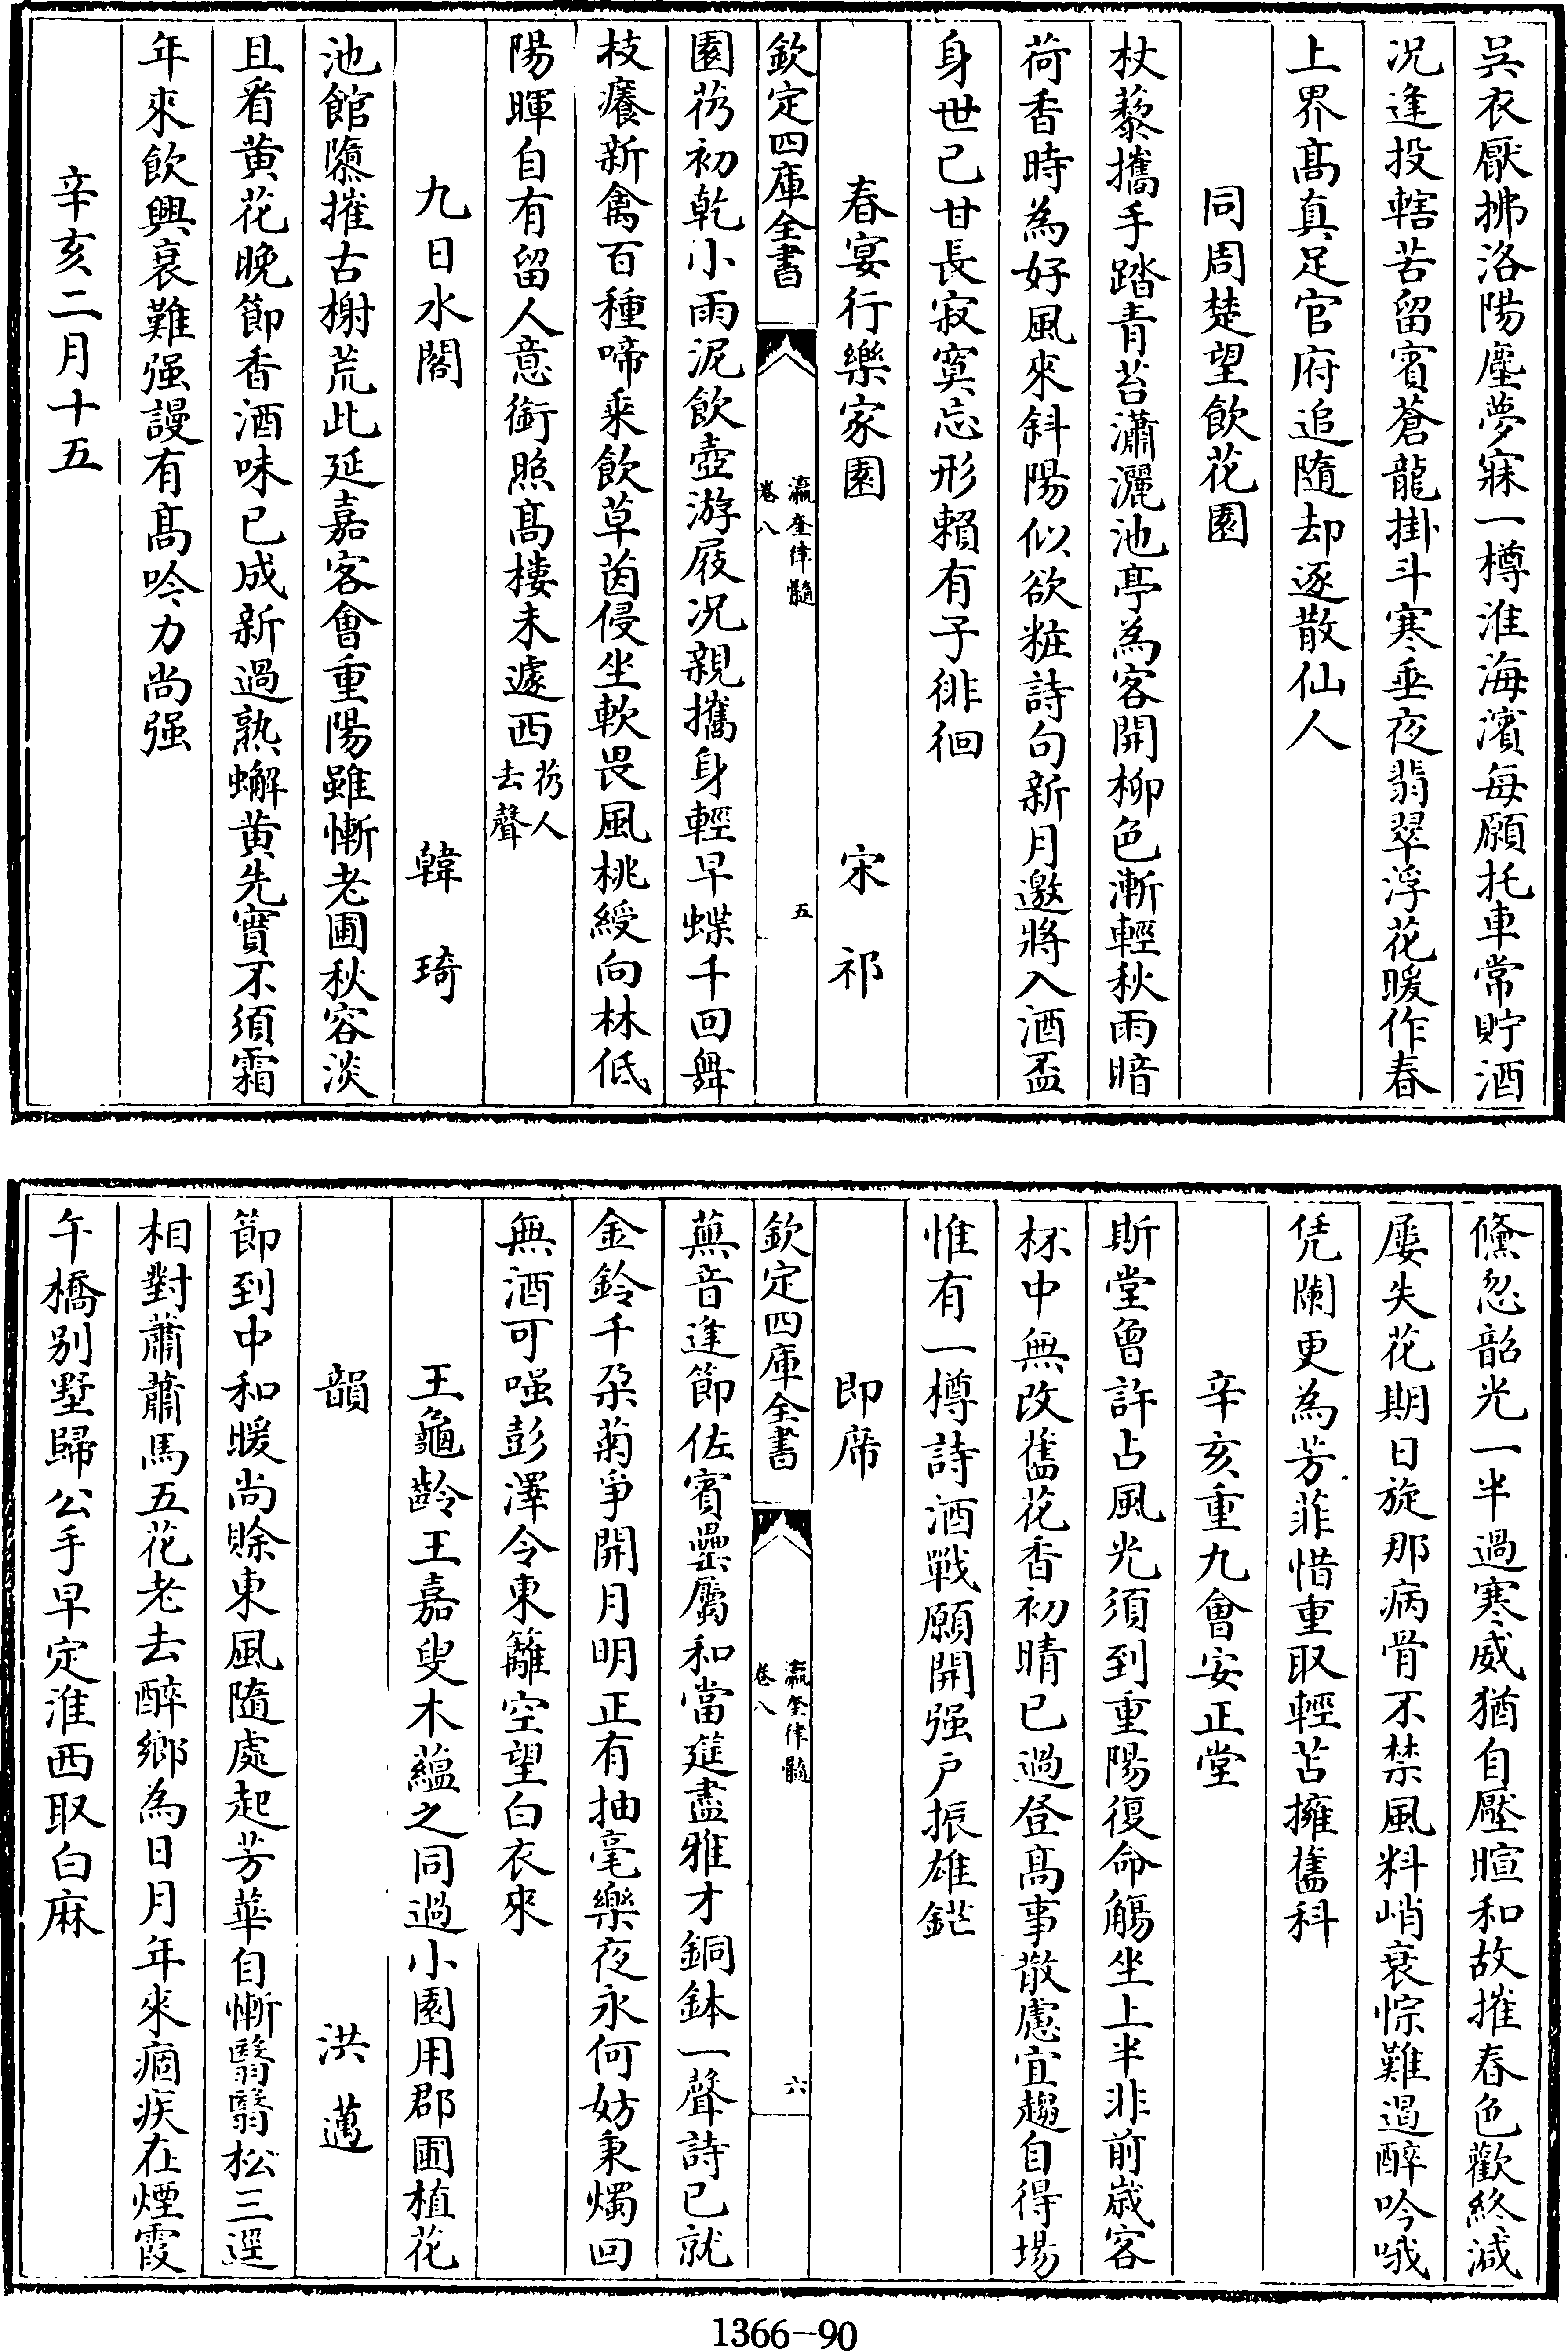 吳衣厭拂洛陽塵夢寐一樽淮海濱每願托車常貯酒
况逢投轄苦留賓蒼龍掛斗寒垂夜翡翠浮花暖作春
上界髙真足官府追隨却逐散仙人
同周楚望飲花園
杖藜攜手踏青苔瀟灑池亭為客開柳色漸輕秋雨暗
荷香時為好風來斜陽似欲粧詩句新月邀將入酒盃
身世已甘長寂寞忘形賴有子徘徊
春宴行樂家園 宋祁
欽定四庫全書 瀛奎律髓 卷八 五
園芿初乾小雨泥飲壺游屐况親攜身輕早蝶千回舞
枝癢新禽百種啼乗飲草茵侵坐軟畏風桃綬向林低
陽暉自有留人意銜照髙樓未遽西芿人去聲
九日水閣 韓琦
池館隳摧古榭荒此延嘉客會重陽雖慚老圃秋容淡
且看黄花晚節香酒味已成新過熟蠏黄先實不須霜
年來飲興衰難强謾有髙吟力尚强
辛亥二月十五
儵忽韶光一半過寒威猶自壓暄和故摧春色歡終減
屢失花期日旋那病骨不禁風料峭衰悰難過醉吟哦
凭闌更為芳菲惜重取輕苫擁舊科
辛亥重九會安正堂
斯堂曾許占風光須到重陽復命觴坐上半非前歳客
杯中無改舊花香初晴已過登髙事散慮宜趨自得場
惟有一樽詩酒戰願開强户振雄鋩
即席
欽定四庫全書 瀛奎律髓 卷八 六
蕪音逢節佐賓罍屬和當筵盡雅才銅鉢一聲詩已就
金鈴千朶菊爭開月明正有抽毫樂夜永何妨秉燭回
無酒可嗤彭澤令東籬空望白衣來
王龜齡王嘉叟木藴之同過小園用郡圃植花
韻 洪邁
節到中和暖尚賖東風隨處起芳華自慚翳翳松三逕
相對蕭蕭馬五花老去醉鄉為日月年來痼疾在煙霞
午橋别墅歸公手早定淮西取白麻
1366-90